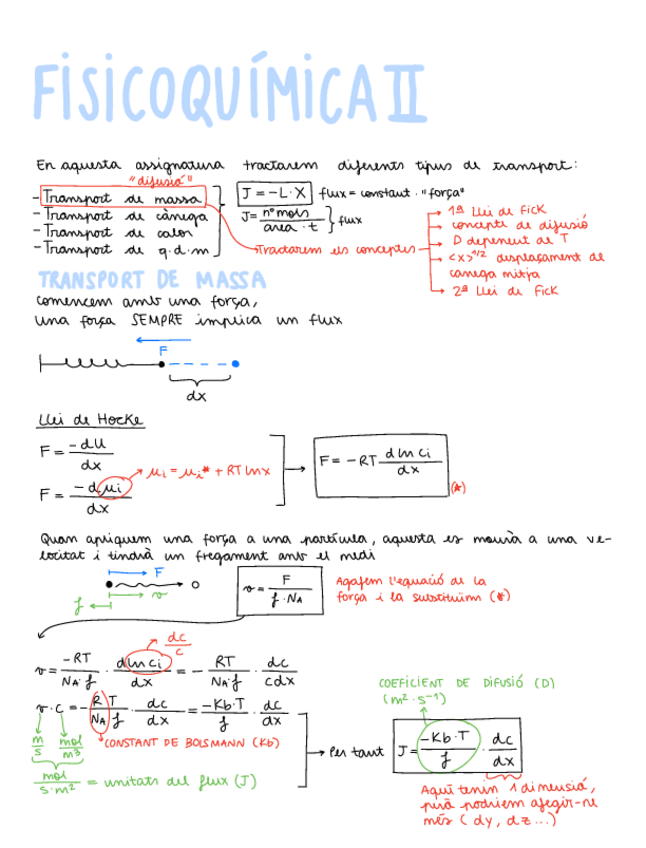 FISICOQUÍMICA II
En aquesta assignatura tractarem diferents tipus de transport:
"difusió"
- Transport de massa
- Transport de càrrega
- Transport de calor
- Transport de q.d.m
J = -L · X flux = constant · "força"
J = nº mols / area · t } flux
Tractarem els conceptes
1ª Llei de Fick
concepte de difusió
D depenent de T
<x>^1/2 desplaçament de
càrrega mitja
2ª Llei de Fick
TRANSPORT DE MASSA
comencem amb una força,
una força SEMPRE implica un flux
F
dx
Llei de Hocke
F = -dU / dx
F = -dμi / dx
μi = μi* + RT ln x
F = -RT d ln ci / dx
(*)
Quan apliquem una força a una partícula, aquesta es mourà a una ve-
locitat i tindrà un fregament amb el medi
F
v
f
v = F / f · NA
Agafem l'equació de la
força i la substituïm (*)
dc / c
v = -RT / NA · f · d ln ci / dx = - RT / NA · f · dc / cdx
v · c = - R T / NA f · dc / dx = -Kb · T / f · dc / dx
m / s mol / m³
CONSTANT DE BOLSMANN (Kb)
mol / s · m² = unitats del flux (J)
COEFICIENT DE DIFUSIÓ (D)
(m² · s⁻¹)
Per tant J = -Kb · T / f · dc / dx
Aquí tenim 1 dimensió,
però podríem afegir-ne
més (dy, dz...)